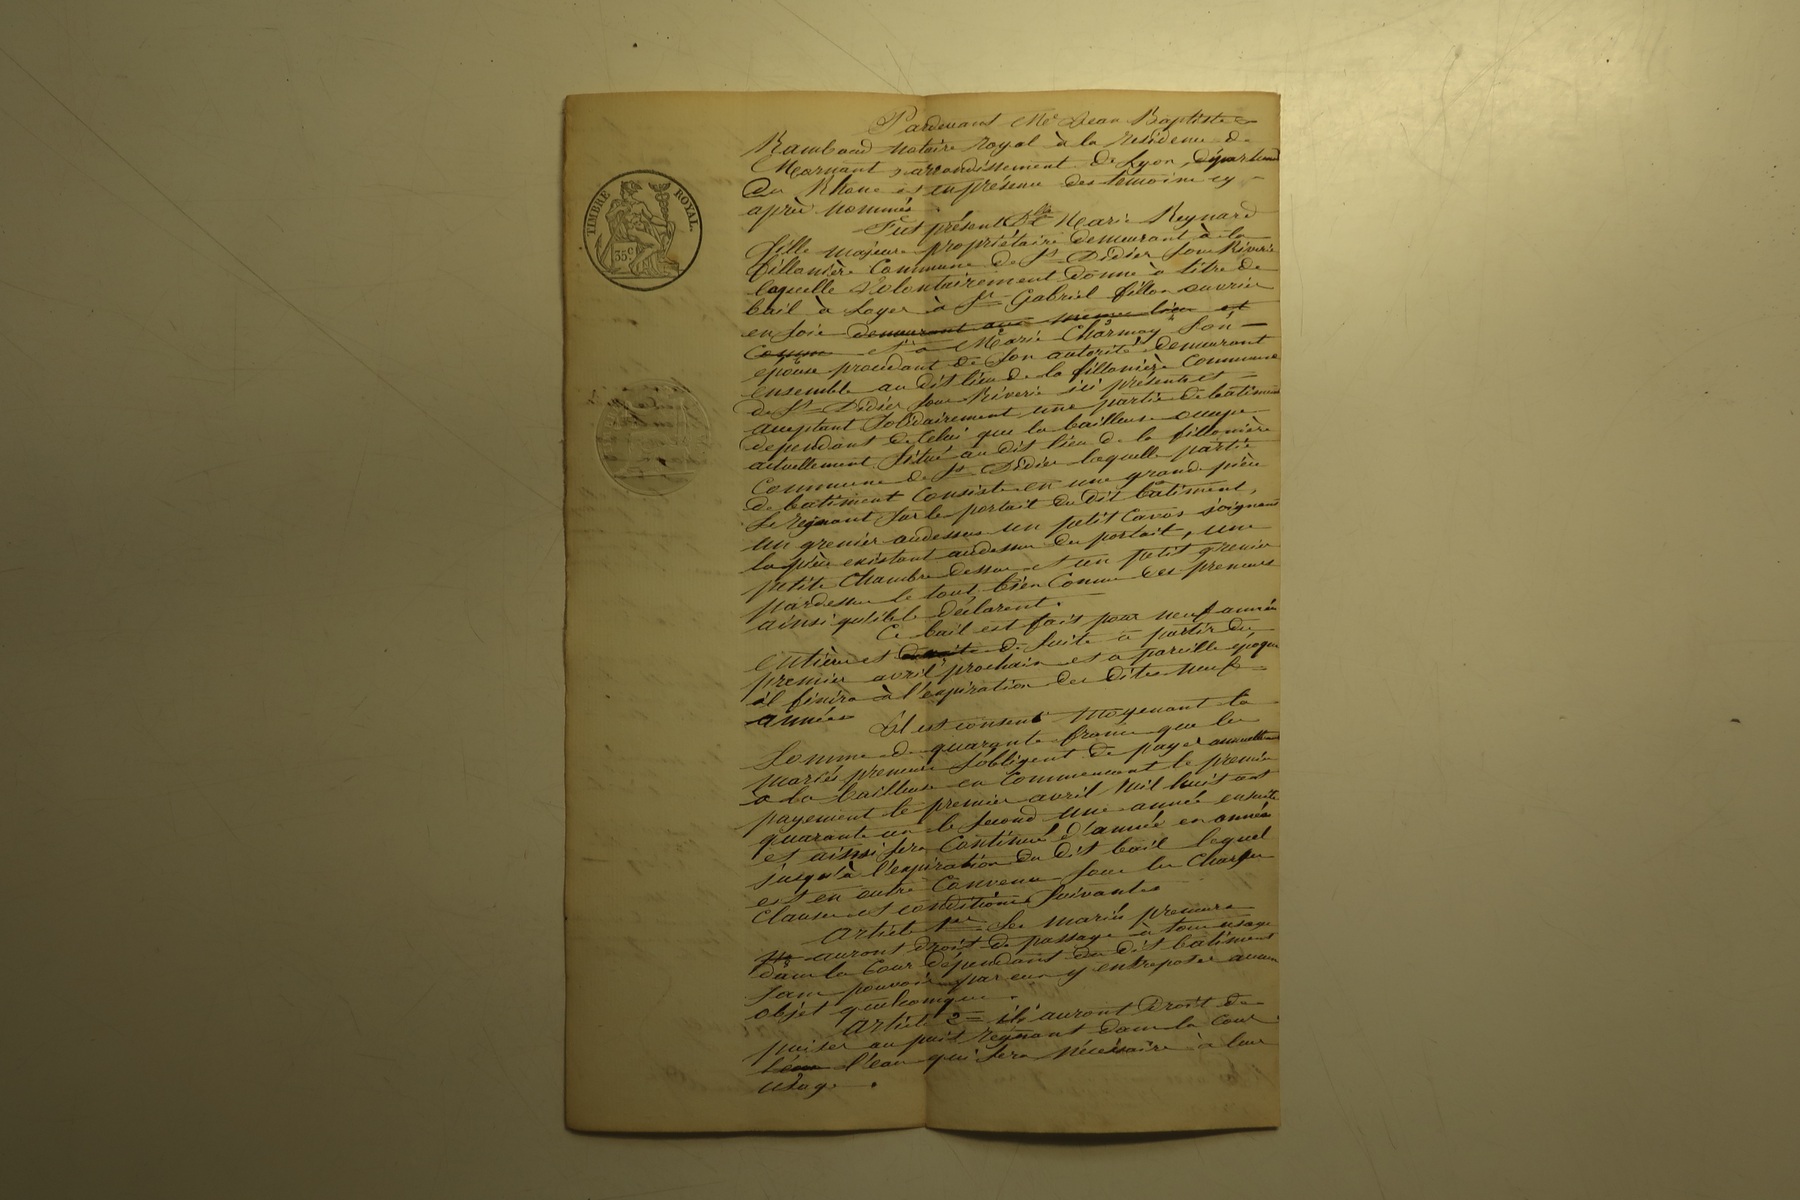 TIMBRE ROYAL
35c
Pardevant Me Jean Baptiste
Rambaud notaire royal à la résidence de
Mornant, arrondissement de Lyon, département
du Rhone et en présence des témoins cy
après nommés
Fut présent Dlle Marie Reynard
fille majeure propriétaire demeurant à la
fillonière Commune de St Didier sous Riverie
laquelle volontairement donne à titre de
bail à loyer à Sr Gabriel fillon ouvrier
en soie demeurant au même lieu et
Comme et à Marie Charmoy Son
épouse procédant de Son autorité demeurant
ensemble au dit lieu de la fillonière Commune
de St Didier sous Riverie ici présents et
acceptant Solidairement une partie de batiment
dependant de Celui que la bailleuse occupe
actuellement Situé au dit lieu de la fillonière
Commune de St Didier laquelle partie
de batiment Consiste en une grande pièce
Se régnant Sur le portait du dit bâtiment,
un grenier audessus un petit Cavos joignant
la pièce existant audessus du portait, une
petite Chambre dessus et un petit grenier
pardessus le tout bien Connu des preneurs
ainsi qu'ils le déclarent.
Ce bail est fait pour neuf années
entières et de suite à partir du
premier avril prochain et a pareille époque
il finira à l'expiration des dites neuf
années
Il est consenti Moyenant la
Somme de quarante francs que les
mariés preneurs S'obligent de payer annuellement
à la bailleuse en Commencant le premier
payement le premier avril mil huit cent
quarante un le second une année ensuite
et ainsi sera Continué d'année en année
jusqu'à l'expiration du dit bail lequel
est en outre Convenu sous les Charges
Clauses et conditions Suivantes
Article 1er Les mariés preneurs
auront droit de passage à tous usage
dans la Cour dépendant du dit bâtiment
Sans pouvoir par eux y entreposer aucun
objet quelconque.
Article 2 = ils auront Droit de
puiser au puit régnant dans la Cour
l'eau l'eau qui Sera nécéssaire à leur
usage.